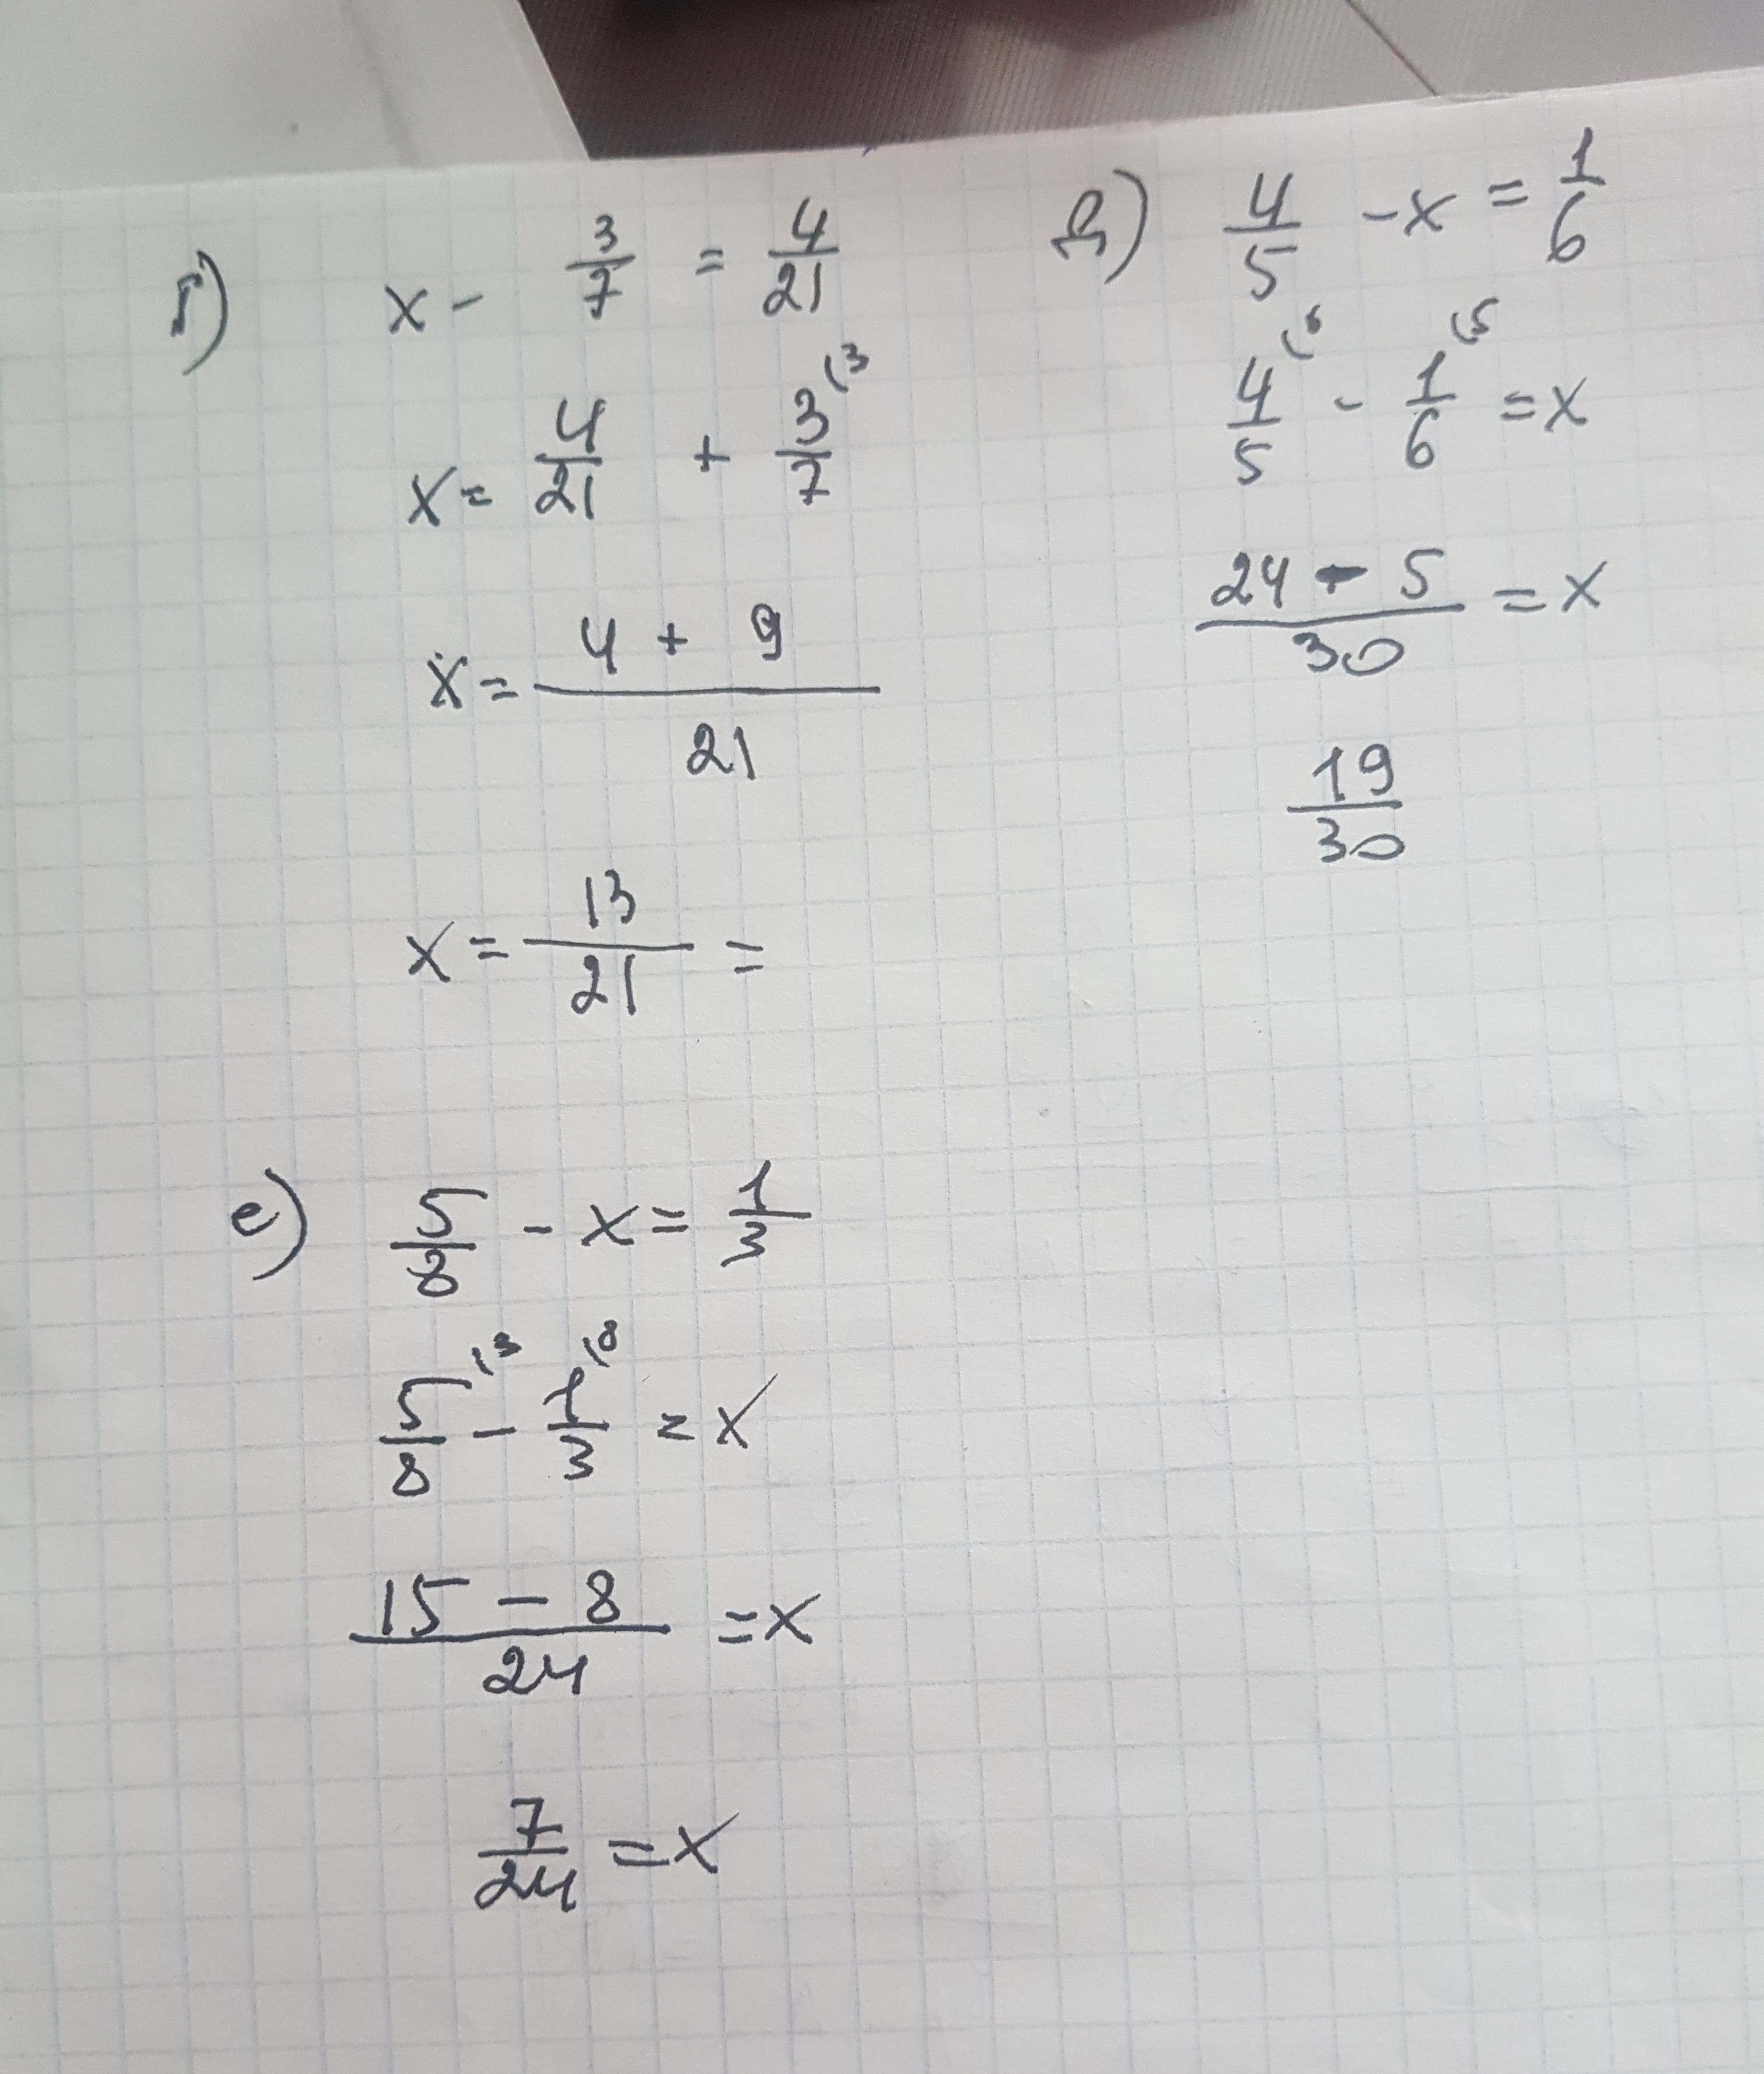 г) x - 3/7 = 4/21
x = 4/21 + 3/7 (3
x = (4 + 9)/21
x = 13/21 =
д) 4/5 - x = 1/6
4/5 (6 - 1/6 (5 = x
(24 - 5)/30 = x
19/30
е) 5/8 - x = 1/3
5/8 (3 - 1/3 (8 = x
(15 - 8)/24 = x
7/24 = x